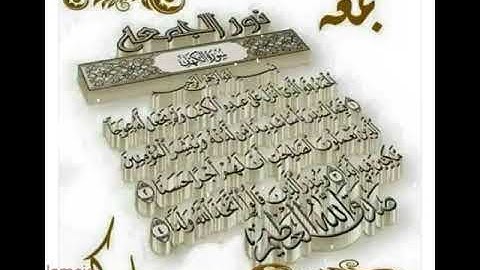 جمعة
نور الجمعة
سورة الكهف
الحمد لله الذي أنزل على عبده الكتب ولم يجعل له عوجا
قيما لينذر بأسا شديدا من لدنه ويبشر المؤمنين
الذين يعملون الصلحت أن لهم أجرا حسنا ٢
مكثين فيه أبدا ٣ وينذر الذين قالوا اتخذ الله ولدا ٤
صدق الله العظيم